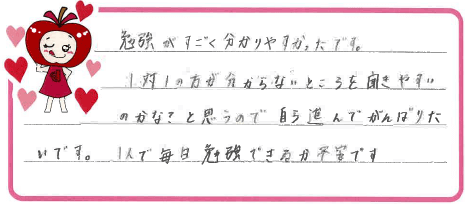 勉強がすごく分かりやすかったです。
1対1の方が分からないところを聞きやすい
のかな?と思うので自ら進んでがんばりた
いです。1人で毎日勉強できるか不安です